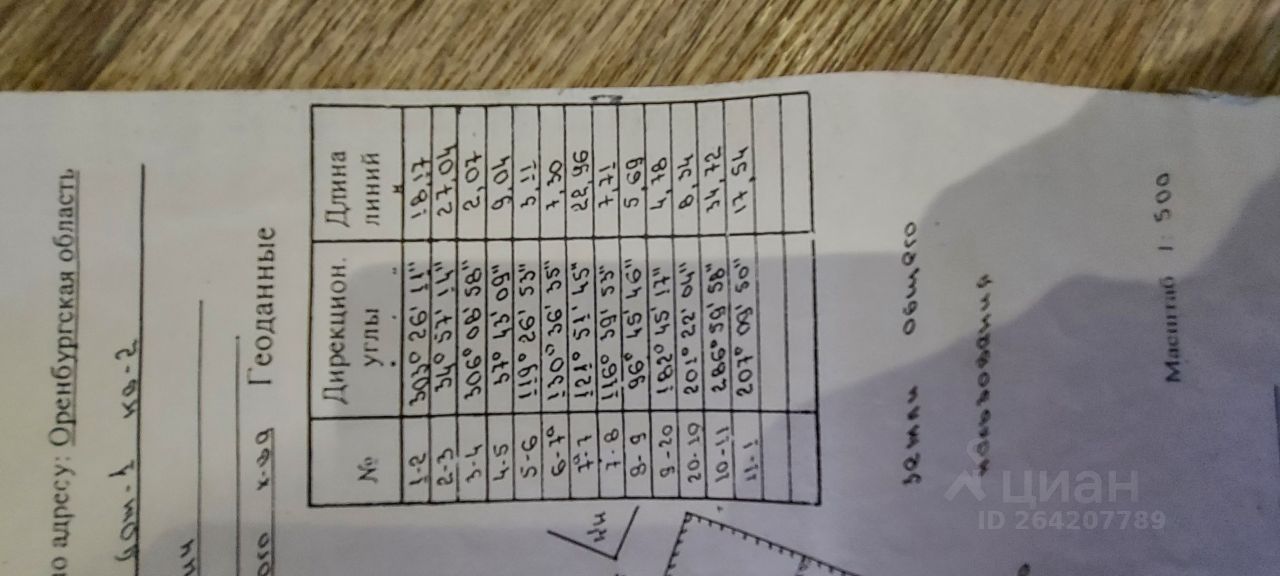 по адресу: Оренбургская область
дом-1 кв-2
Геоданные
№ Дирекцион. углы Длина линий
° ' " м
1-2 303° 26' 11" 18,17
2-3 34° 57' 14" 27,04
3-4 306° 08' 58" 2,07
4-5 37° 43' 09" 9,04
5-6 119° 26' 53" 3,11
6-7ª 130° 36' 35" 7,30
7ª-7 121° 51' 45" 22,96
7-8 116° 39' 53" 7,71
8-9 96° 45' 46" 5,69
9-20 182° 45' 17" 4,78
20-19 201° 22' 04" 8,34
10-11 286° 59' 58" 34,72
11-1 207° 09' 50" 17,54
земли общего
пользования
Масштаб 1:500
циан
ID 264207789